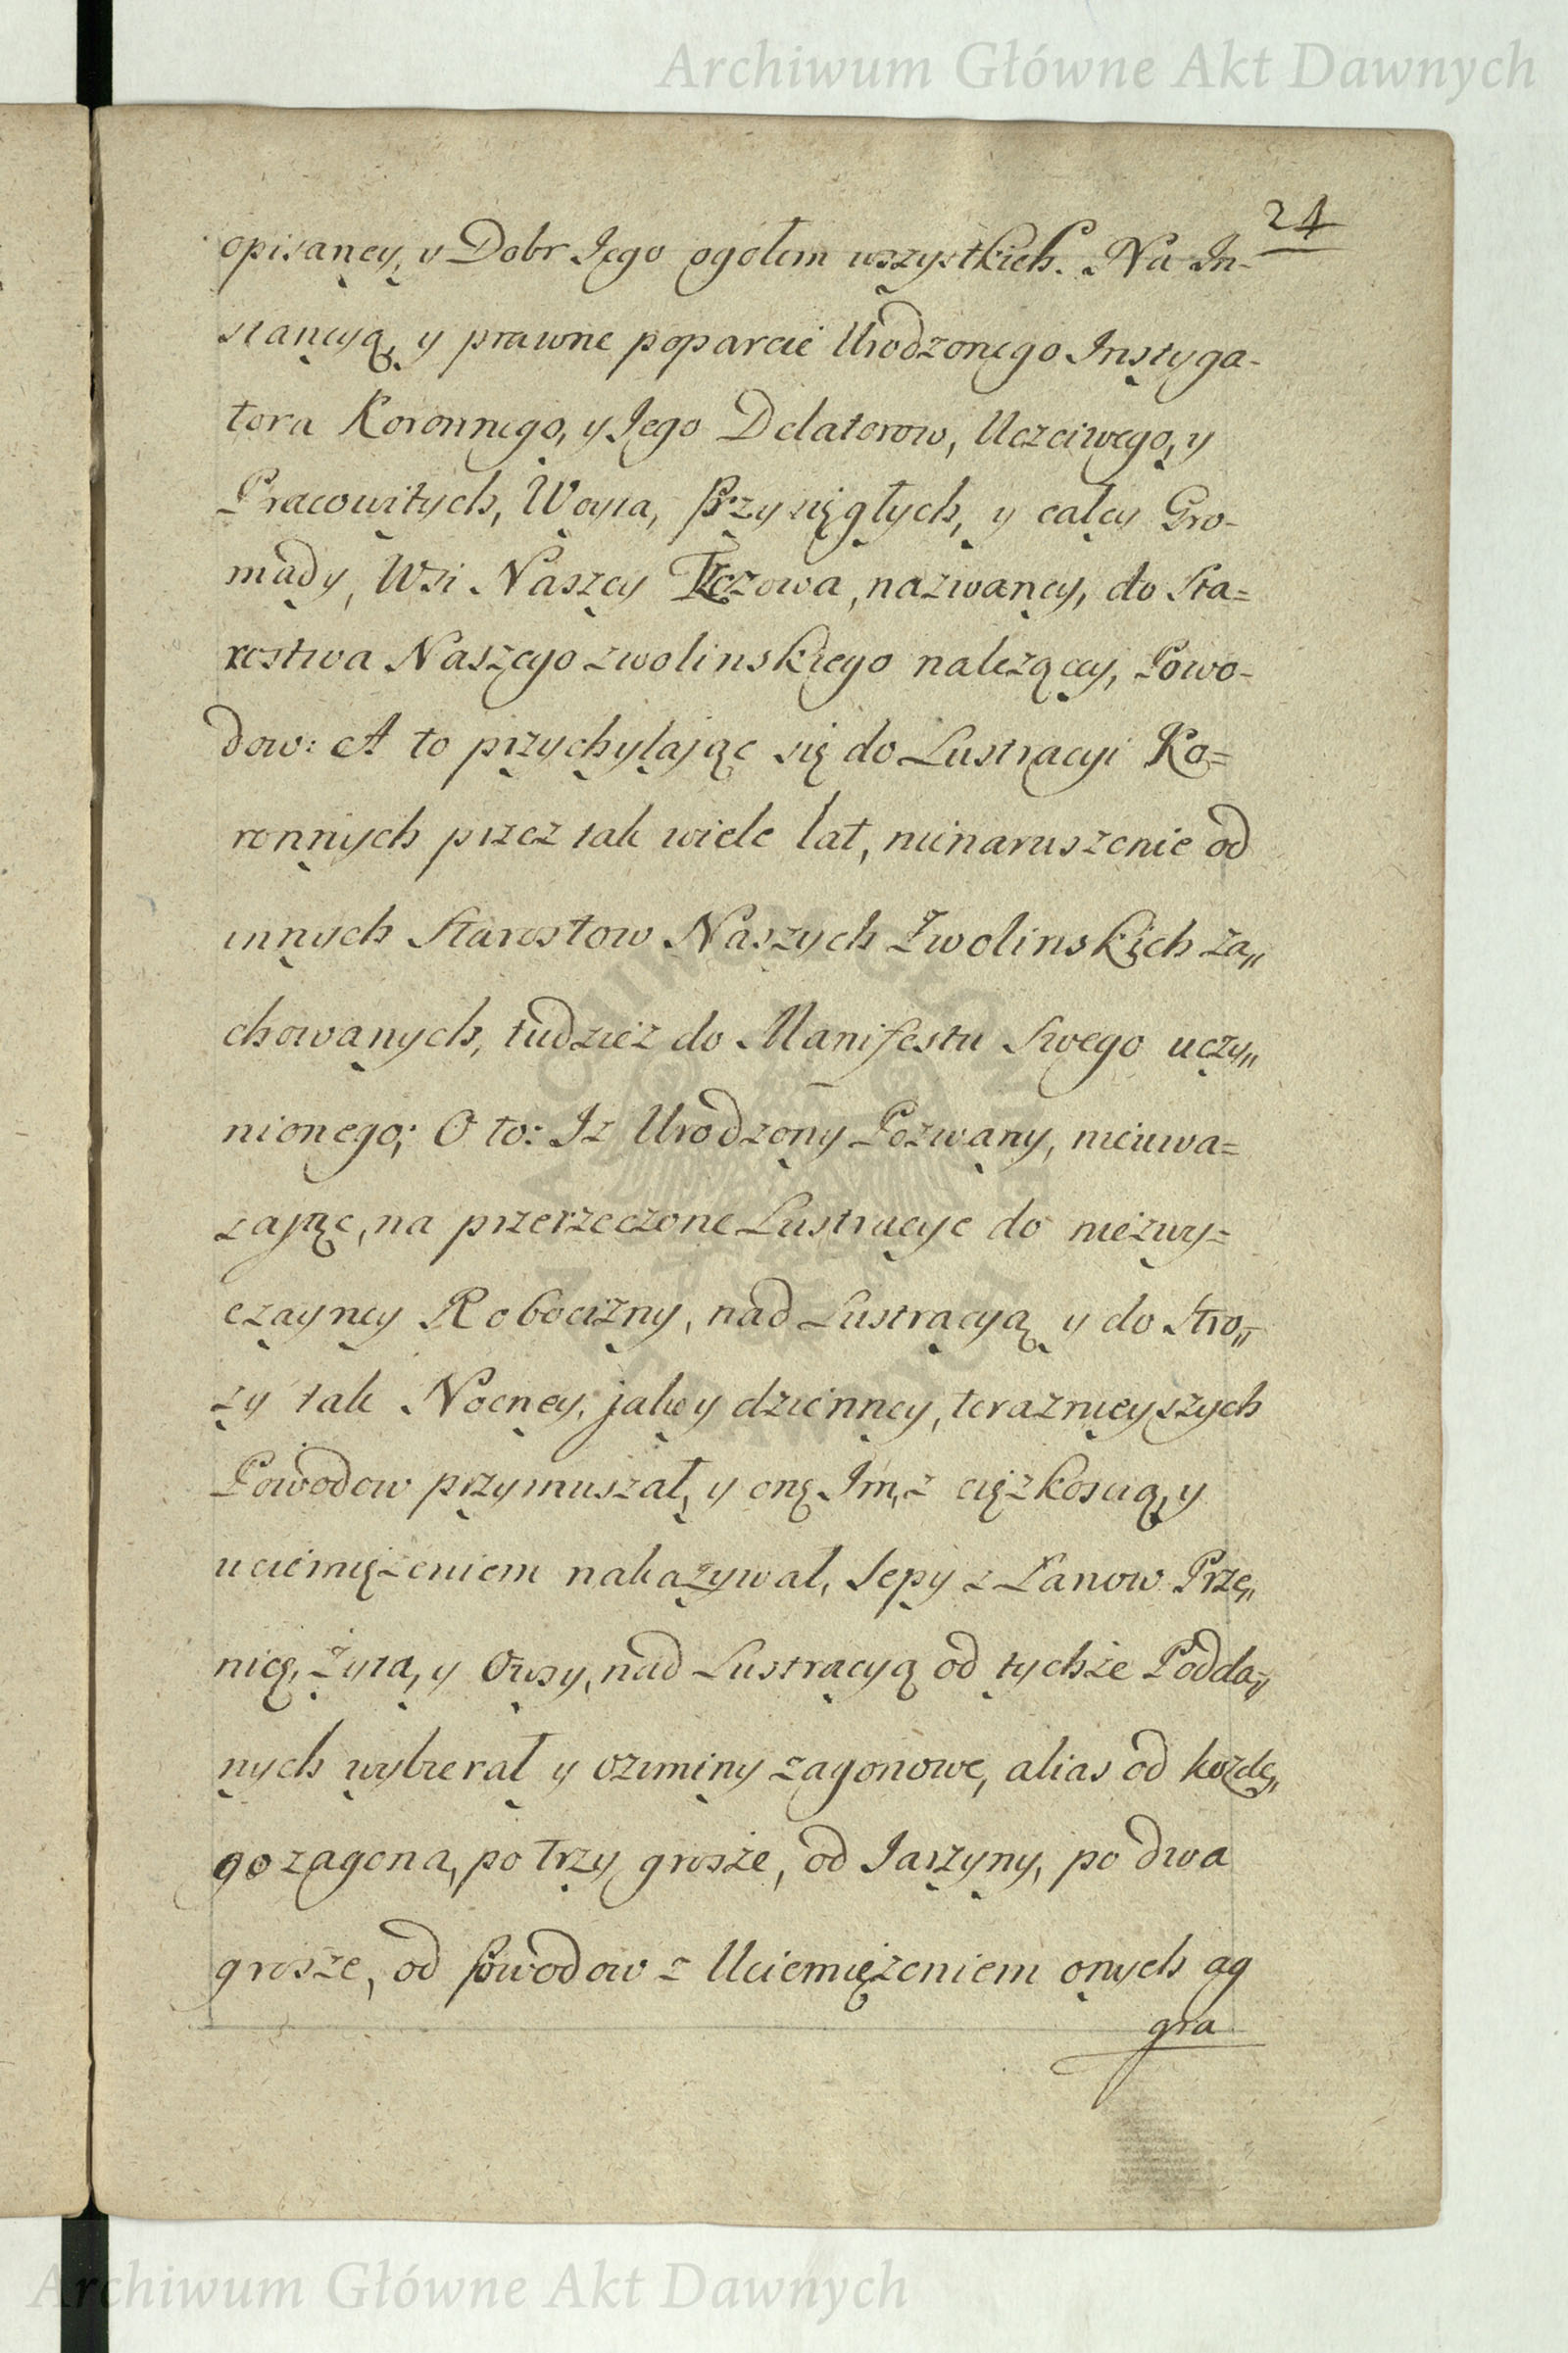 Archiwum Główne Akt Dawnych
24
opisaney, y Dobr Jego ogołem wszystkich. Na In-
stancyą, y prawne poparcie Urodzonego Instyga-
tora Koronnego, y Jego Delatorow, Uczciwego, y
Pracowitych, Woyta, Przysięgłych, y całey Gro-
mady, Wsi Naszey Tczowa, nazwaney, do Sta=
rostwa Naszego zwolinskiego należącey, Powo-
dow: A to przychylając się do Lustracyi Ko=
ronnych przez tak wiele lat, nienaruszenie od
innych Starostow Naszych Zwolinskich za„
chowanych, tudzież do Manifestu Swego uczy„
nionego; O to: Iż Urodzony Pozwany, nieuwa=
zając, na przerzeczone Lustracye do niezwy=
czayney Robocizny, nad Lustracyą y do Stro„
zy tak Nocney, jako y dzienney, teraznieyszych
Powodow przymuszał, y onę Im, z cięzkoscią, y
uciemięzeniem nakazywał, Sepy z Łanow Prze„
nicę, żyta, y Owsy, nad Lustracyą od tychże Podda„
nych wybierał y oziminy zagonowe, alias od kozde„
go zagona, po trzy grosze, od Jarzyny, po dwa
grosze, od Powodow z Uciemiężeniem onych ag
gra
Archiwum Główne Akt Dawnych